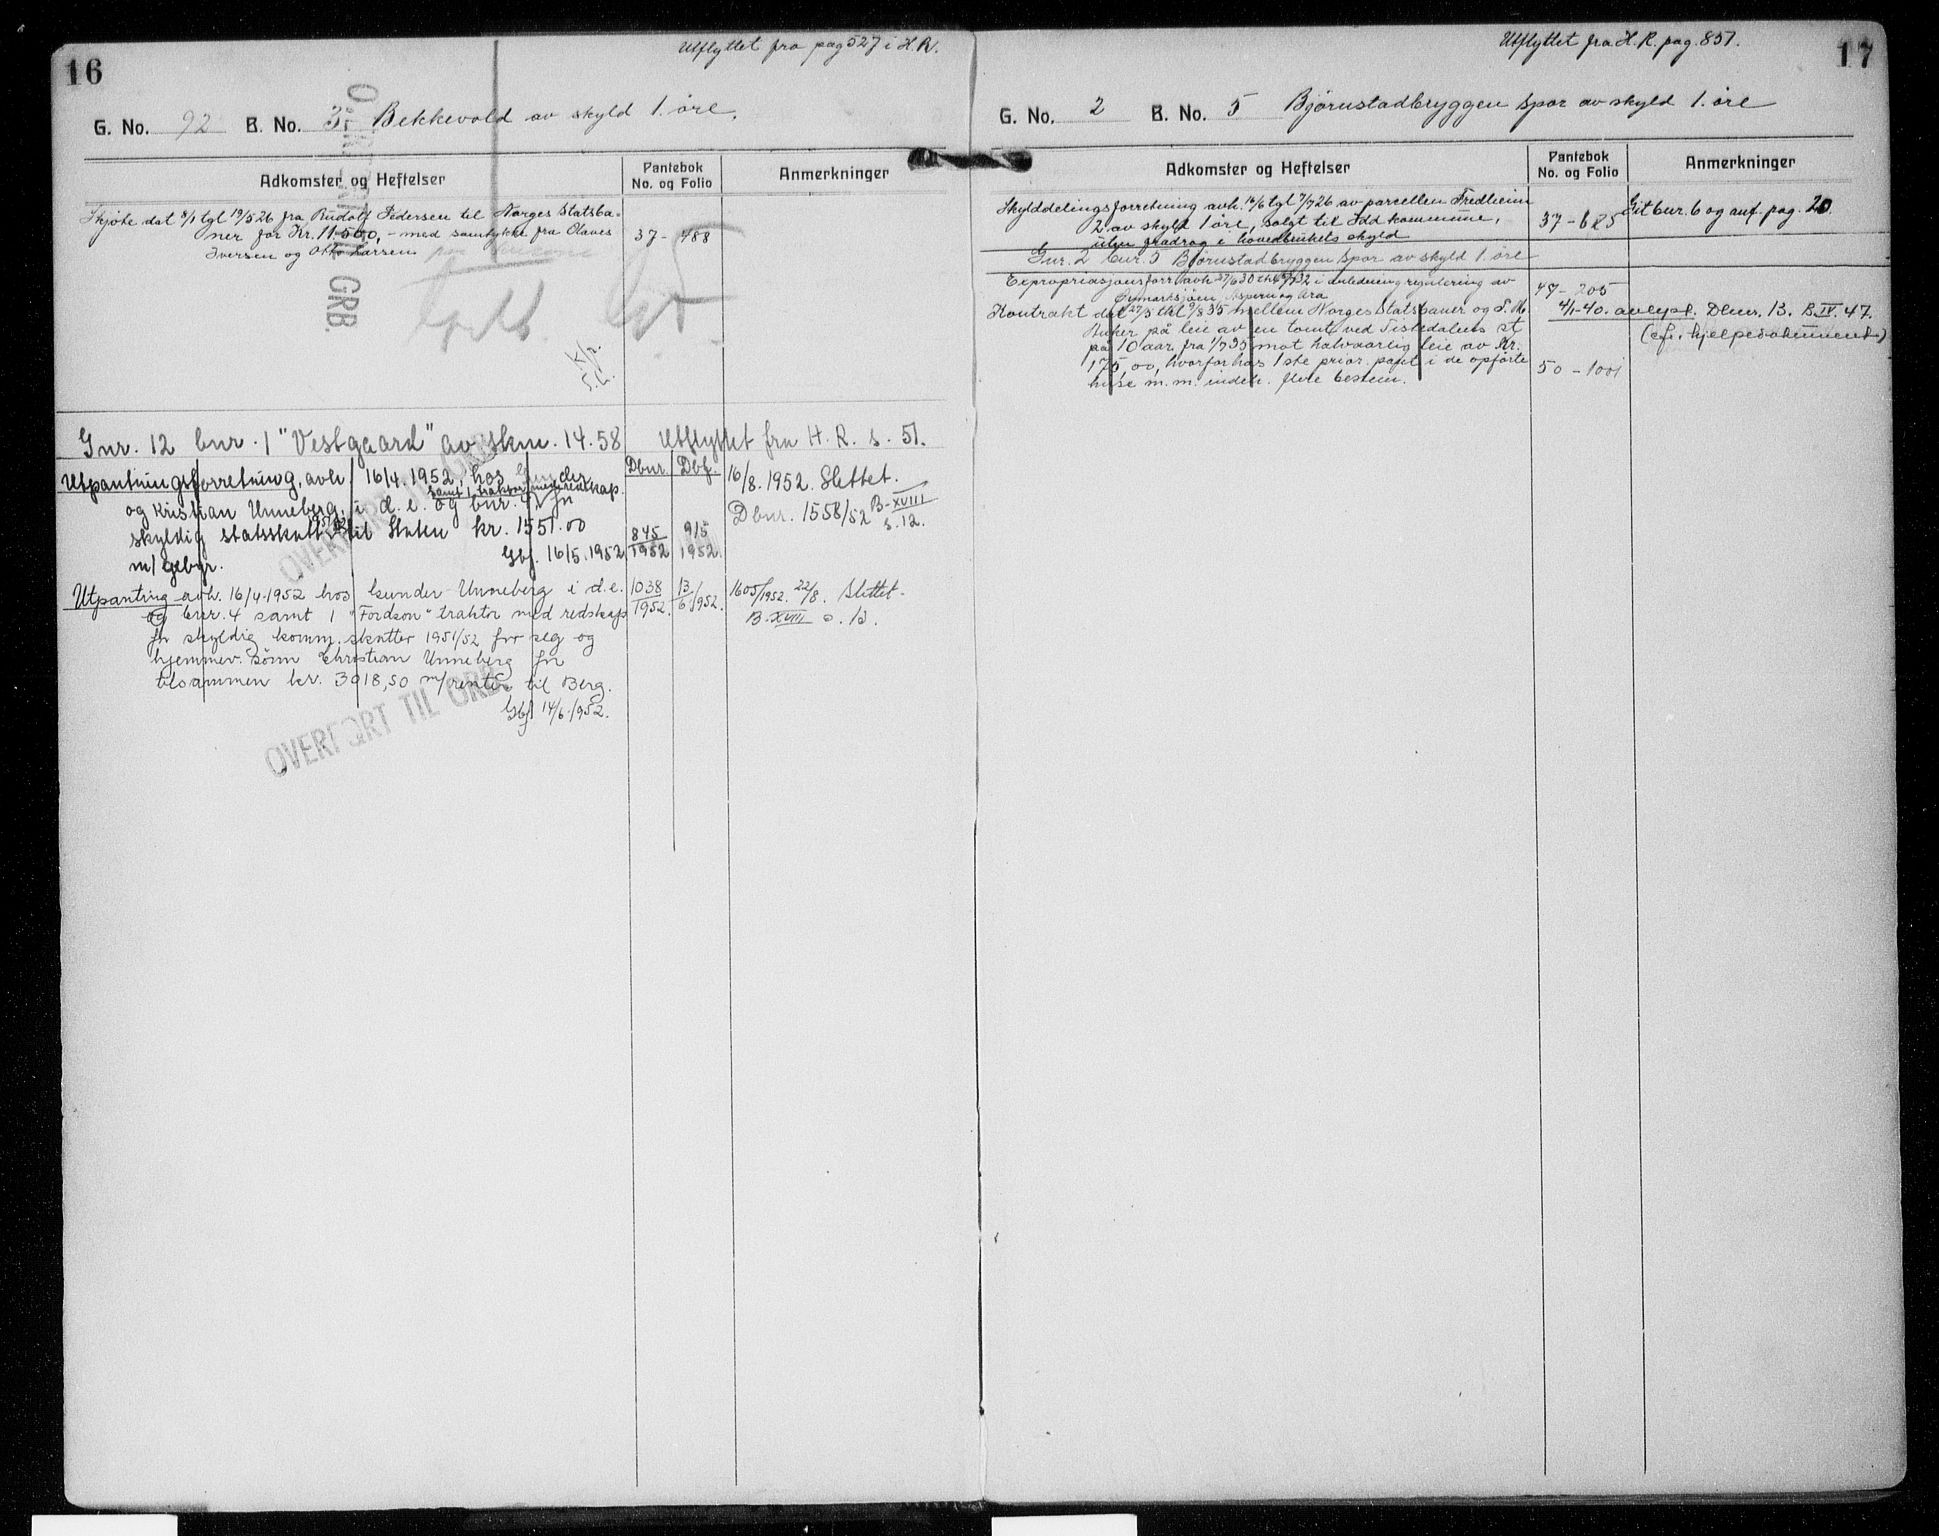 16
Utflyttet fra pag 527 i H.R.
G. No. 92 B. No. 3 Bekkevold av skyld 1 øre.
Adkomster og Heftelser
Pantebok
No. og Folio
Anmerkninger
Skjøte dat 8/1 tgl 19/5 26 fra Rudolf Pedersen til Norges Statsba-
ner for Kr. 11.500,- med samtykke fra Olaves
Iversen og Otto Larsen
37 - 488
GRB.
Gnr. 12 bnr. 1 "Vestgaard" av skm. 14.58
Utflyttet fra H. R. s. 51.
Dbnr. Dbf.
Utpantningsforretning, avh. 16/4. 1952, hos Gunder
samt 1 traktor med redskap.
og Kristian Unneberg, i d. e. og bnr. 4, for
skyldig statsskatt til Staten kr. 1551.00
m/ gebyr.
Gbf. 16/5. 1952
845/1952
9/5 1952.
16/8. 1952 Slettet.
Dbnr. 1558/52 B-XVIII
s. 12.
OVERFØRT TIL GRB.
Utpanting avh. 16/4-1952 hos Gunder Unneberg i d.e.
og bnr. 4 samt 1 "Fordson" traktor med redskap
for skyldig komm. skatter 1951/52 for seg og
hjemmev. sønn Christian Unneberg for
tilsammen kr. 3018,50 m/renter til Berg.
Gbf 14/6-1952.
1038/1952.
13/6 1952.
1605/1952. 22/8. Slettet-
B. XVIII s. 13.
OVERFØRT TIL GRB.
17
Utflyttet fra H.R. pag. 851.
G. No. 2 B. No. 5 Bjørnstadbryggen spor av skyld 1 øre
Adkomster og Heftelser
Pantebok
No. og Folio
Anmerkninger
Skylddelingsforretning avh. 12/6 tgl 7/7 26 av parcellen Fredheim
2 av skyld 1 øre, solgt til Idd kommune,
uten fradrag i hovedbrukets skyld
37 - 625
Git bnr. 6 og anf. pag. 20
Gnr. 2 bnr. 5 Bjørnstadbryggen spor av skyld 1 øre
Expropriasjonsforr. avh 27/6 30 i anledning regulering av
Øymarksjøen, Aspern og Ara
47 - 205
Kontrakt dat 27/5 tkl 9/8 35 mellem Norges Statsbaner og
på leie av en tomt ved Tistedalens st
på 10 aar fra 1/7 35 mot halvaarlig leie av Kr.
175,00, hvorfor has 1ste prior. pant i de opførte
huse m. m. indeh. flere bestem.
50 - 1001
4/1-40. avlyst. Dbnr. 13. B IV. 47.
(cfr. hjelpedokument)